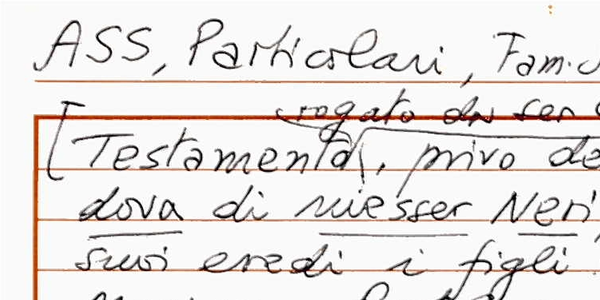 ASS, Particolari, Fam.
rogato da ser
[Testamento, privo de
dova di messer Neri,
suoi eredi i figli